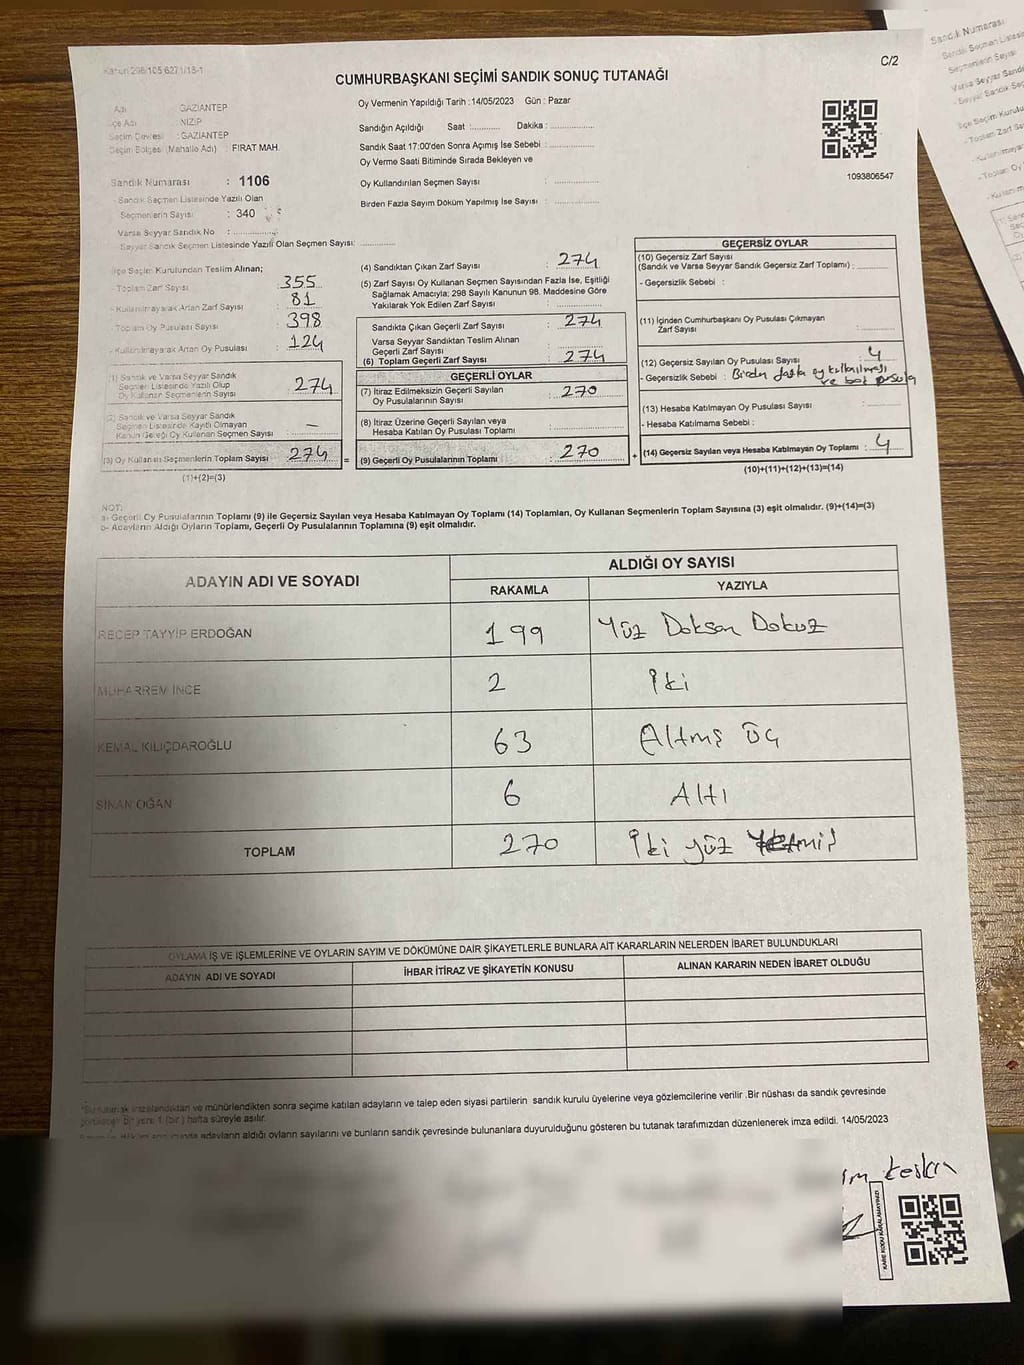 Kanun 298/105 6271/18-1
C/2
CUMHURBAŞKANI SEÇİMİ SANDIK SONUÇ TUTANAĞI
Adı : GAZİANTEP
İlçe Adı : NİZİP
Seçim Çevresi : GAZİANTEP
Seçim Bölgesi (Mahalle Adı) : FIRAT MAH.
Sandık Numarası : 1106
- Sandık Seçmen Listesinde Yazılı Olan
Seçmenlerin Sayısı : 340
Varsa Seyyar Sandık No :
- Seyyar Sandık Seçmen Listesinde Yazılı Olan Seçmen Sayısı:
Oy Vermenin Yapıldığı Tarih :14/05/2023 Gün : Pazar
Sandığın Açıldığı Saat : Dakika :
Sandık Saat 17:00'den Sonra Açımış İse Sebebi :
Oy Verme Saati Bitiminde Sırada Bekleyen ve
Oy Kullandırılan Seçmen Sayısı :
Birden Fazla Sayım Döküm Yapılmış İse Sayısı :
1093806547
İlçe Seçim Kurulundan Teslim Alınan;
- Toplam Zarf Sayısı : 355
- Kullanılmayarak Artan Zarf Sayısı : 81
- Toplam Oy Pusulası Sayısı : 398
- Kullanılmayarak Artan Oy Pusulası : 124
(1) Sandık ve Varsa Seyyar Sandık
Seçmen Listesinde Yazılı Olup
Oy Kullanan Seçmenlerin Sayısı : 274
(2) Sandık ve Varsa Seyyar Sandık
Seçmen Listesinde Kayıtlı Olmayan
Kanun Gereği Oy Kullanan Seçmen Sayısı : –
(3) Oy Kullanan Seçmenlerin Toplam Sayısı : 274
(1)+(2)=(3)
(4) Sandıktan Çıkan Zarf Sayısı : 274
(5) Zarf Sayısı Oy Kullanan Seçmen Sayısından Fazla İse, Eşitliği
Sağlamak Amacıyla; 298 Sayılı Kanunun 98. Maddesine Göre
Yakılarak Yok Edilen Zarf Sayısı :
Sandıkta Çıkan Geçerli Zarf Sayısı : 274
Varsa Seyyar Sandıktan Teslim Alınan
Geçerli Zarf Sayısı :
(6) Toplam Geçerli Zarf Sayısı : 274
GEÇERLİ OYLAR
(7) İtiraz Edilmeksizin Geçerli Sayılan
Oy Pusulalarının Sayısı : 270
(8) İtiraz Üzerine Geçerli Sayılan veya
Hesaba Katılan Oy Pusulası Toplamı :
= (9) Geçerli Oy Pusulalarının Toplamı : 270
GEÇERSİZ OYLAR
(10) Geçersiz Zarf Sayısı
(Sandık ve Varsa Seyyar Sandık Geçersiz Zarf Toplamı) :
- Geçersizlik Sebebi :
(11) İçinden Cumhurbaşkanı Oy Pusulası Çıkmayan
Zarf Sayısı :
(12) Geçersiz Sayılan Oy Pusulası Sayısı : 4
- Geçersizlik Sebebi : Birden fazla oy kullanılması
ve boş pusula
(13) Hesaba Katılmayan Oy Pusulası Sayısı :
- Hesaba Katılmama Sebebi :
+ (14) Geçersiz Sayılan veya Hesaba Katılmayan Oy Toplamı : 4
(10)+(11)+(12)+(13)=(14)
NOT:
a- Geçerli Oy Pusulalarının Toplamı (9) ile Geçersiz Sayılan veya Hesaba Katılmayan Oy Toplamı (14) Toplamları, Oy Kullanan Seçmenlerin Toplam Sayısına (3) eşit olmalıdır. (9)+(14)=(3)
b- Adayların Aldığı Oyların Toplamı, Geçerli Oy Pusulalarının Toplamına (9) eşit olmalıdır.
ADAYIN ADI VE SOYADI ALDIĞI OY SAYISI
RAKAMLA YAZIYLA
RECEP TAYYİP ERDOĞAN 199 Yüz Doksan Dokuz
MUHARREM İNCE 2 İki
KEMAL KILIÇDAROĞLU 63 Altmış Üç
SİNAN OĞAN 6 Altı
TOPLAM 270 İki yüz Yetmiş
OYLAMA İŞ VE İŞLEMLERİNE VE OYLARIN SAYIM VE DÖKÜMÜNE DAİR ŞİKAYETLERLE BUNLARA AİT KARARLARIN NELERDEN İBARET BULUNDUKLARI
ADAYIN ADI VE SOYADI İHBAR İTİRAZ VE ŞİKAYETİN KONUSU ALINAN KARARIN NEDEN İBARET OLDUĞU
*Bu tutanak imzalandıktan ve mühürlendikten sonra seçime katılan adayların ve talep eden siyasi partilerin sandık kurulu üyelerine veya gözlemcilerine verilir .Bir nüshası da sandık çevresinde
görülecek bir yere 1 (bir) hafta süreyle asılır.
adayların aldığı oyların sayılarını ve bunların sandık çevresinde bulunanlara duyurulduğunu gösteren bu tutanak tarafımızdan düzenlenerek imza edildi. 14/05/2023
KARE KODU KARALAMAYINIZ!
Sandık Numarası
- Sandık Seçmen Listesi
Seçmenlerin Sayısı
Varsa Seyyar Sandı